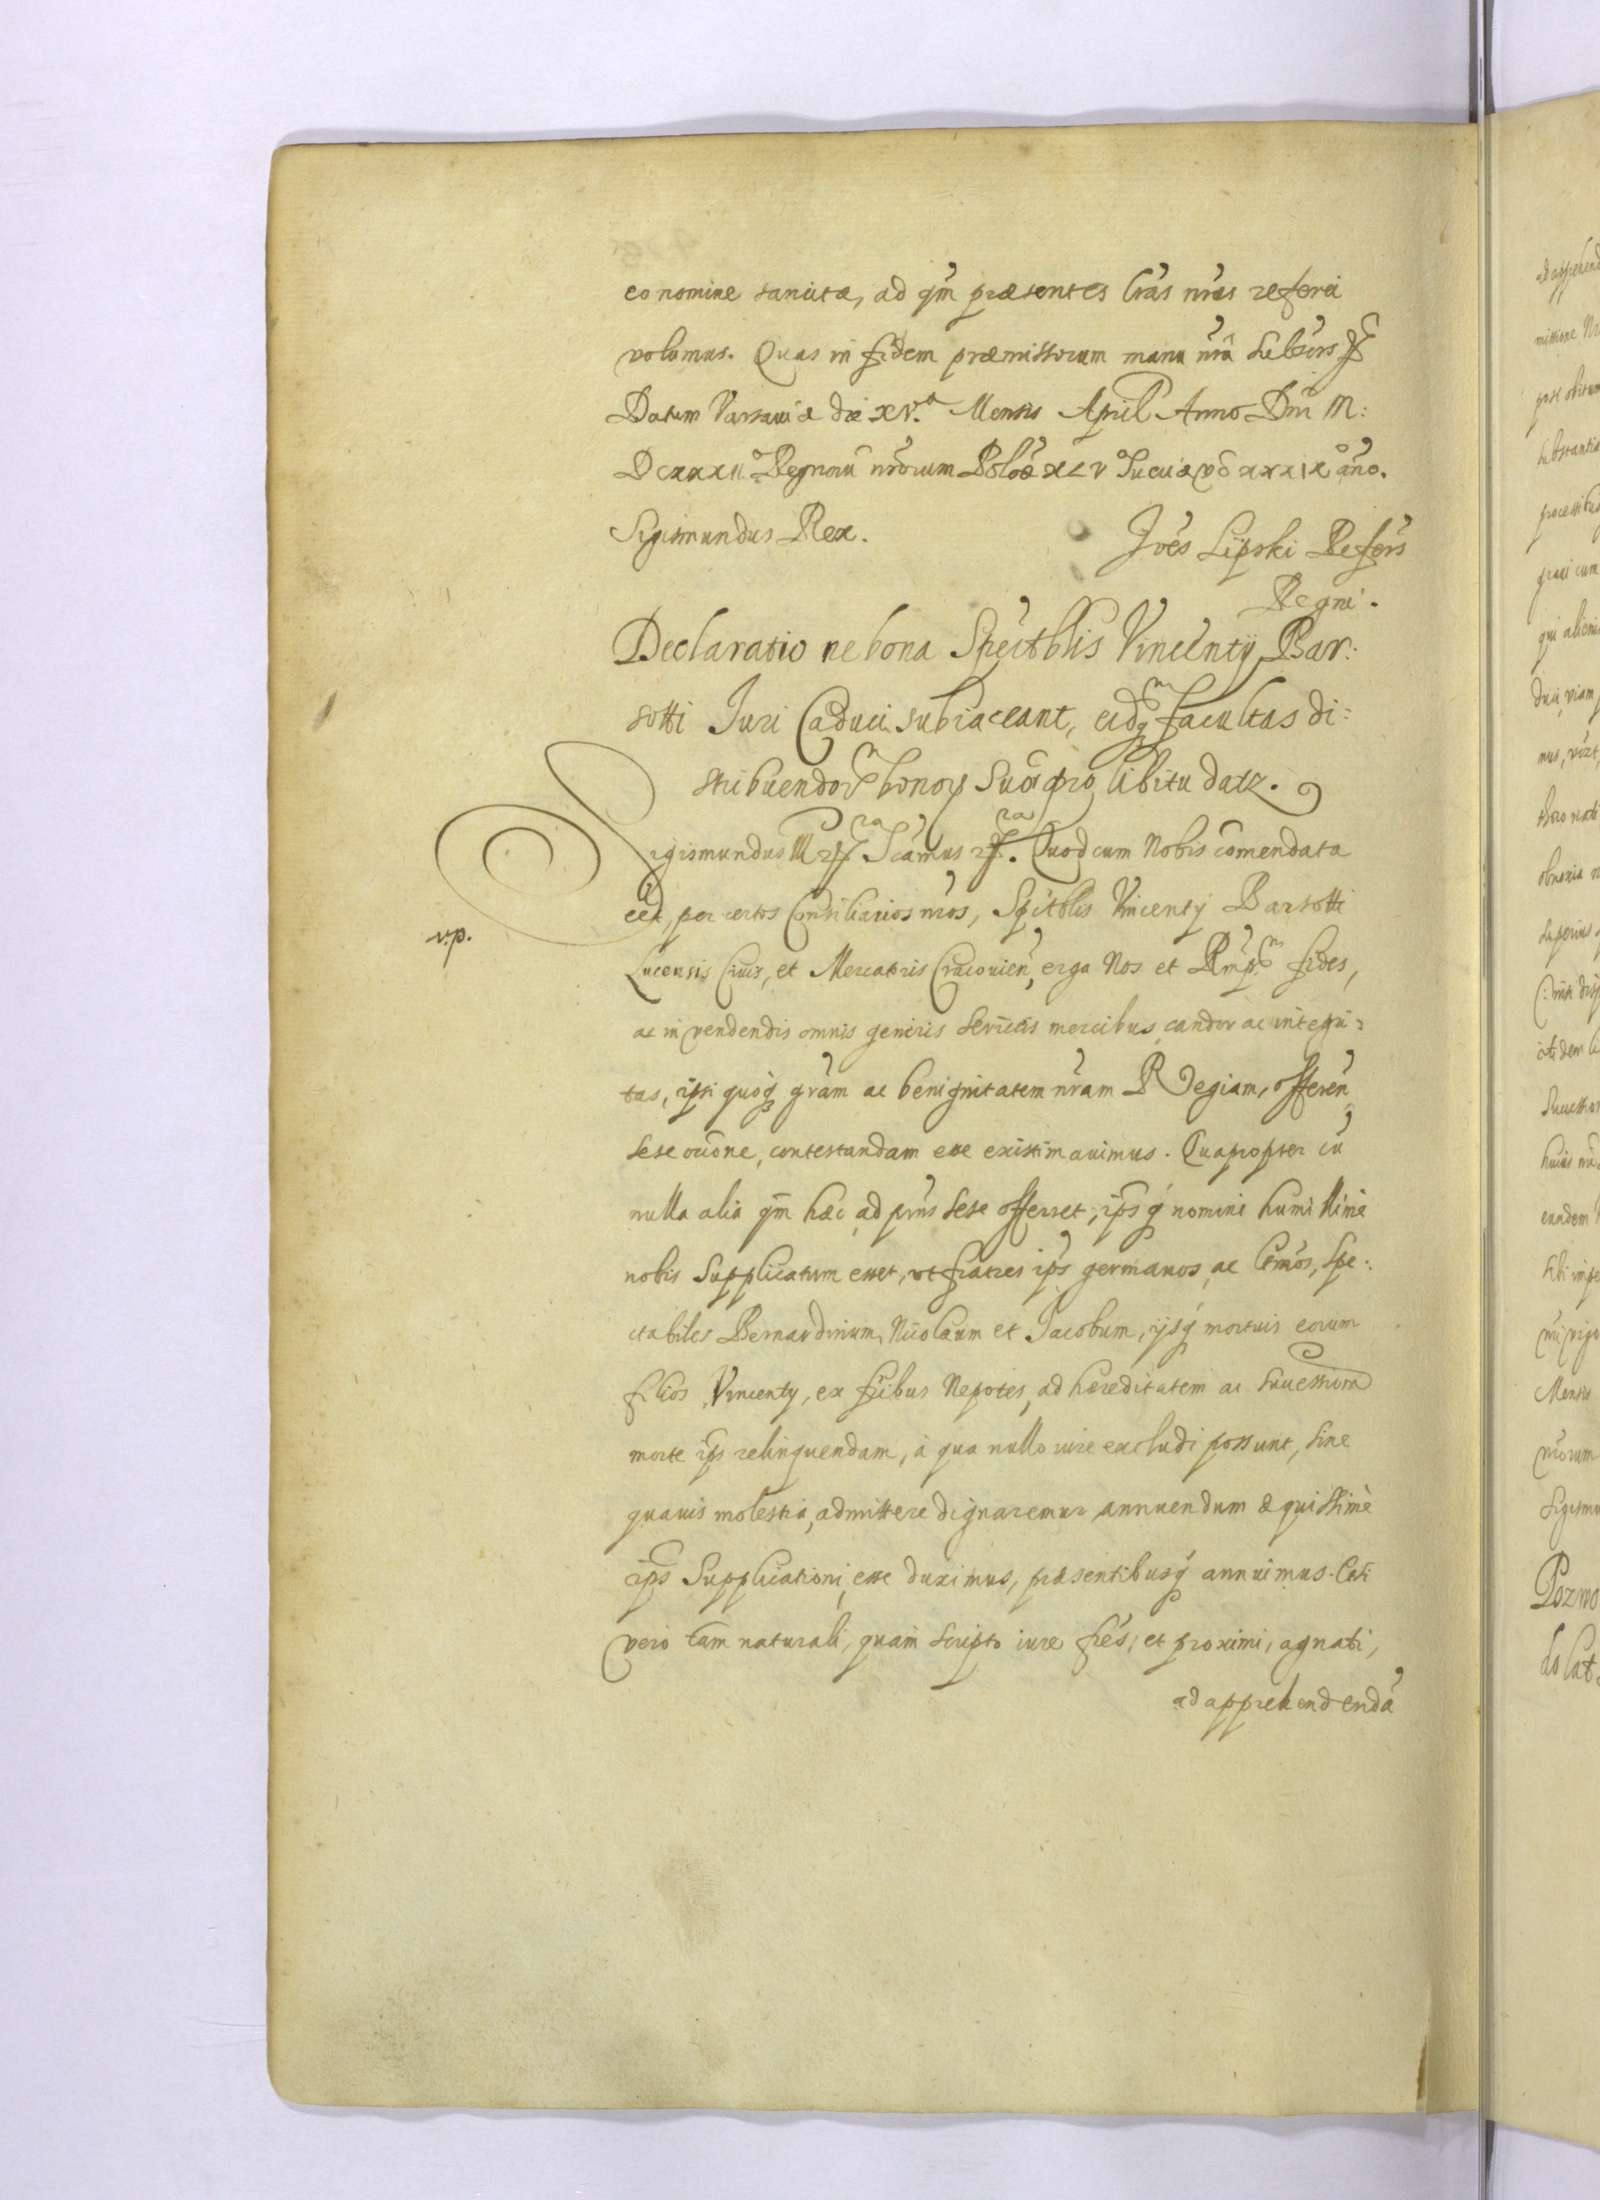 eo nomine sancitæ, ad qm̃ præsentes lr̃as nr̃as referri
volumus. Quas in fidem præmissorum manu nr̃a subscrs.
Datum Varsauiæ die XV.ª Mensis April Anno Dni M:
DCXXXIIº Regnorũ nr̃orum Polõæ XLVº Sueciæ vº XXXIXº año.
Sigismundus Rex.
Joẽs Lipski Refers
Regni.
Declaratio ne bona Spectblis Vincentij Bar:
sotti Juri Caduci subiaceant, eidq facultas di:
stribuendor bonor Suor pro libitu datr.
Sigismundus III Scamus. Quod cum Nobis cõmendata
eet, per certos Consiliarios nr̃os, Spectblis Vincentij Barsotti
Lucensis Ciuis, et Mercatoris Cracouien, erga Nos et Rmp. fides,
ac in vendendis omnis generis sericeis mercibus candor ac integri:
tas, ipsi quoq gr̃am ac benignitatem nr̃am Regiam, offeren
sese occõne, contestandam esse existimauimus. Quapropter cũ
nulla alia qm̃ hæc ad prñs sese offerret, ipsq nomine humillime
nobis supplicatum esset, vt fratres ips germanos, ac, Spe:
ctabiles Bernardinum, Nicolaum et Jacobum, ijsq mortuis eorum
filios, Vincenty, ex fribus Nepotes, ad hæreditatem ac successionẽ
morte ips relinquendam, à qua nullo iure excludi possunt, sine
quauis molestia, admittere dignaremur annuendum æquissimè
ips Supplicationi, esse duximus, præsentibusq annuimus.
vero tam naturali, quam scripto iure fres, et proximi, agnati,
ad apprehendendã
v.p.